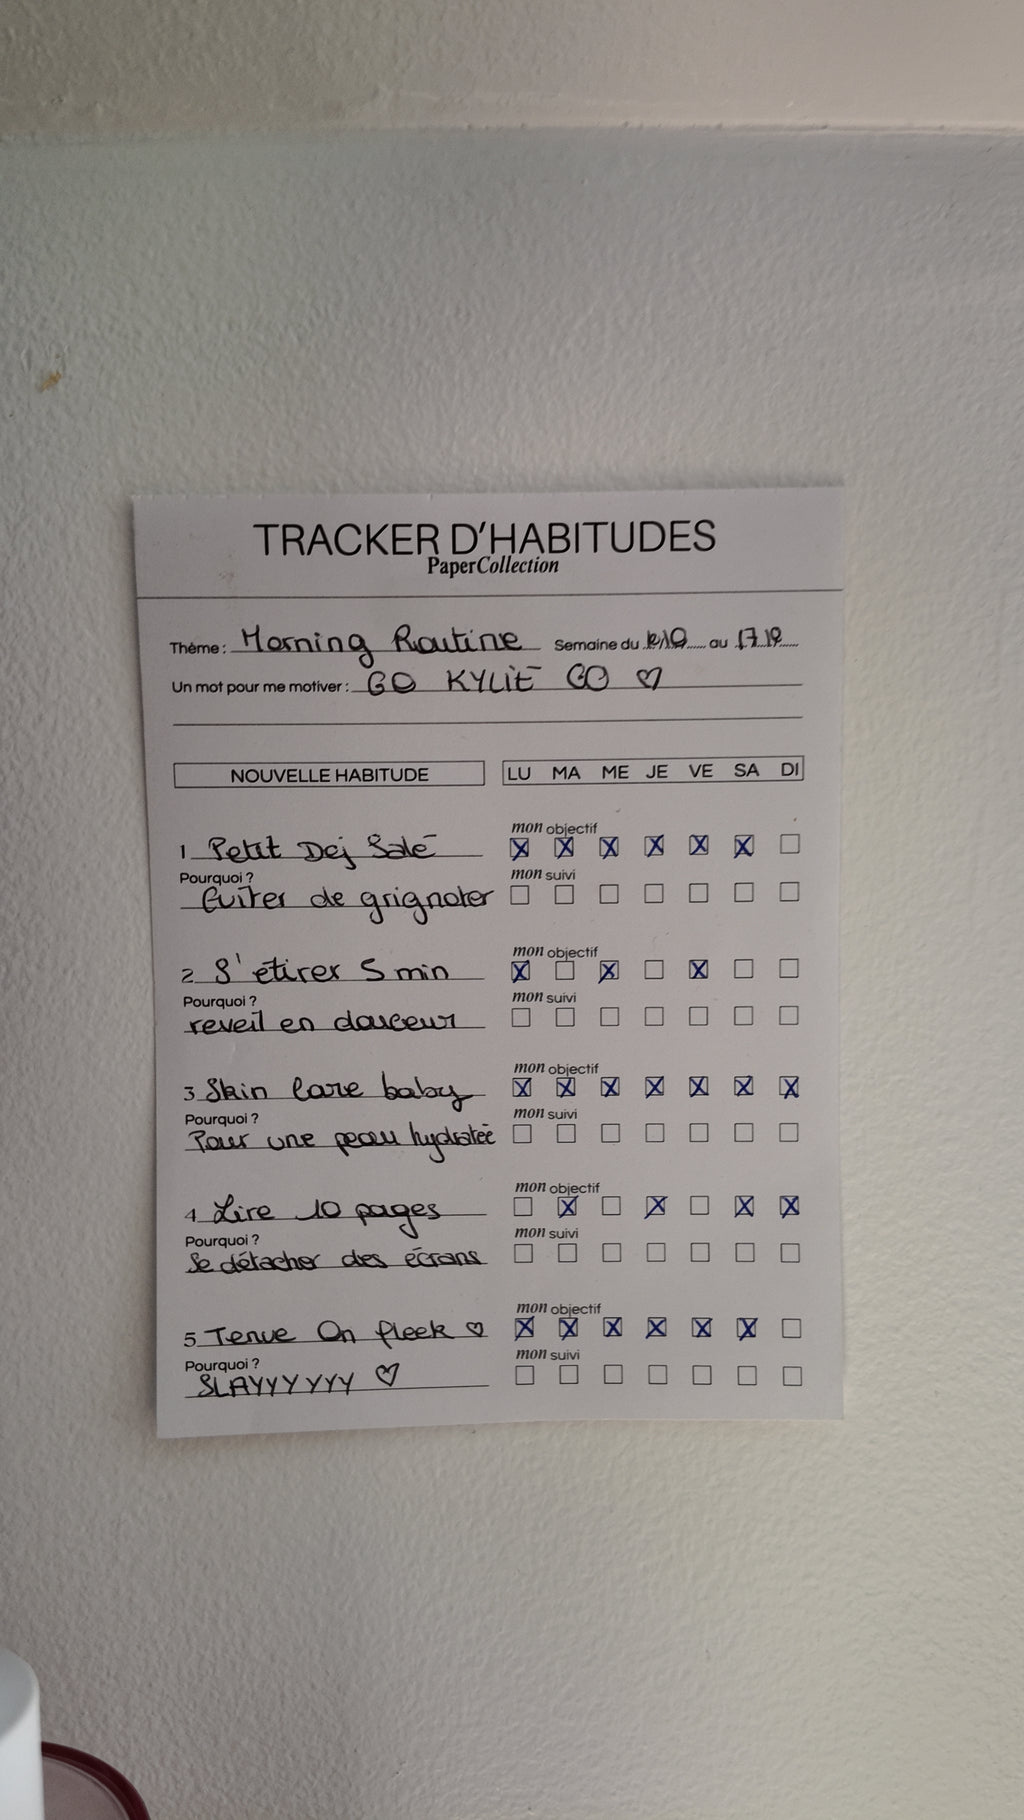 TRACKER D'HABITUDES
PaperCollection
Thème : Morning Routine Semaine du au 17.10
Un mot pour me motiver : GO KYLIE GO ♡
NOUVELLE HABITUDE LU MA ME JE VE SA DI
mon objectif
1 Petit Dej Salé
Pourquoi ? mon suivi
Eviter de grignoter
mon objectif
2 S'étirer 5 min
Pourquoi ? mon suivi
reveil en douceur
mon objectif
3 Skin Care baby
Pourquoi ? mon suivi
Pour une peau hydratée
mon objectif
4 Lire 10 pages
Pourquoi ? mon suivi
Se détacher des écrans
mon objectif
5 Tenue On fleek ♡
Pourquoi ? mon suivi
SLAYYYYYYY ♡